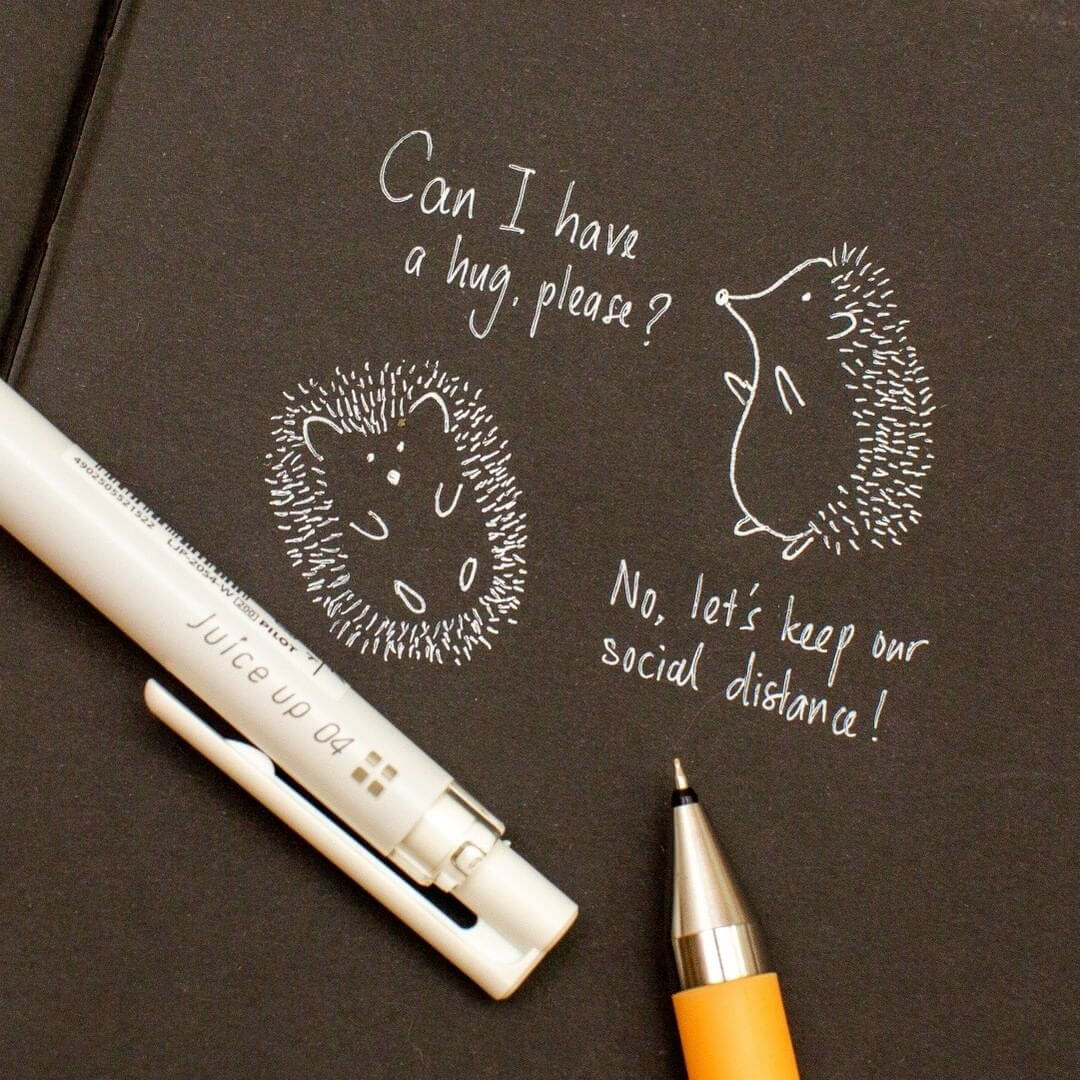 Can I have
a hug, please?
No, let's keep our
social distance!
4902505521522
LJP-20S4-W (200) PILOT
Juice up 04